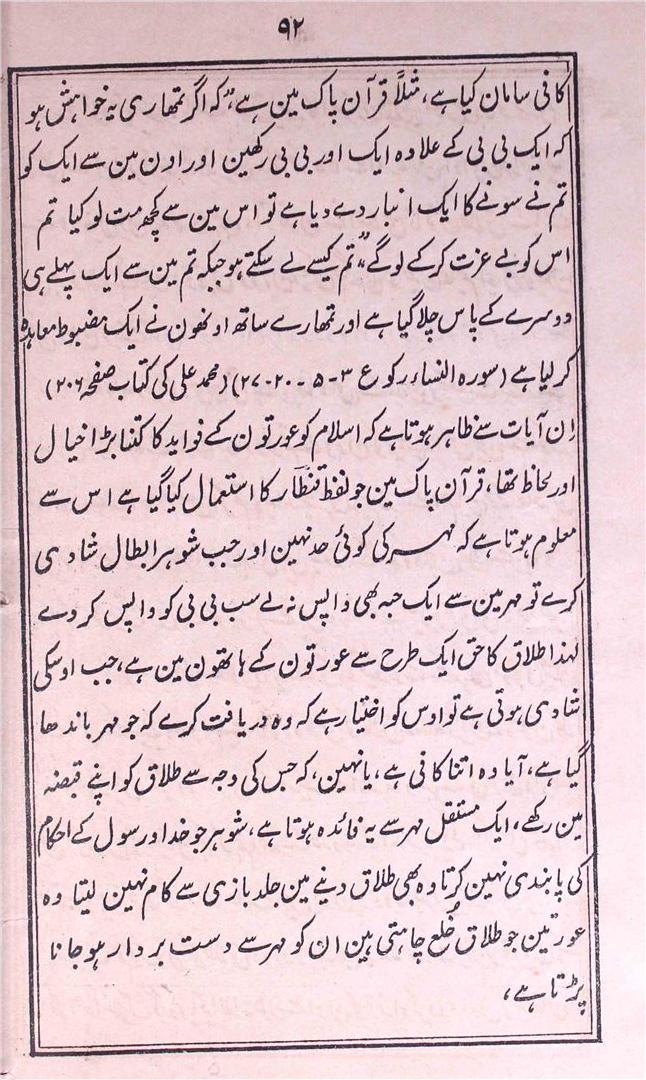 ۹۲
کافی سامان کیا ہے، مثلاً قرآن پاک مین ہے "کہ اگر تمھاری یہ خواہش ہو
کہ ایک بی بی کے علاوہ ایک اور بی بی رکھین اور اون مین سے ایک کو
تم نے سونے کا ایک انبار دے دیا ہے تو اس مین سے کچھ مت لو کیا تم
اس کو بے عزت کرکے لوگے" تم کیسے لے سکتے ہو جبکہ تم مین سے ایک پہلے ہی
دوسرے کے پاس چلا گیا ہے اور تمھارے ساتھ اونھون نے ایک مضبوط معاہدہ
کر لیا ہے (سورہ النساء رکوع ۳-۵-۲۰-۲۷) (محمد علی کی کتاب صفحہ ۲۰۶)
اِن آیات سے ظاہر ہوتا ہے کہ اسلام کو عورتون کے فواید کا کتنا بڑا خیال
اور لحاظ تھا، قرآن پاک مین جو لفظ قنطَار کا استعمال کیا گیا ہے اس سے
معلوم ہوتا ہے کہ مہر کی کوئی حد نہین اور جب شوہر ابطال شادی
کرے تو مہر مین سے ایک حبہ بھی واپس نہ لے سب بی بی کو واپس کر دے
لہذا طلاق کا حق ایک طرح سے عورتون کے ہاتھون مین ہے، جب اوسکی
شادی ہوتی ہے تو اوس کو اختیار ہے کہ وہ دریافت کرے کہ جو مہر باندھا
گیا ہے، آیا وہ اتنا کافی ہے، یا نہین، کہ جس کی وجہ سے طلاق کو اپنے قبضہ
مین رکھے، ایک مستقل مہر سے یہ فائدہ ہوتا ہے، شوہر جو خدا و رسول کے احکام
کی پابندی نہین کرتا وہ بھی طلاق دینے مین جلد بازی سے کام نہین لیتا وہ
عورتین جو طلاق خُلع چاہتی ہین ان کو مہر سے دست بردار ہو جانا
پڑتا ہے،